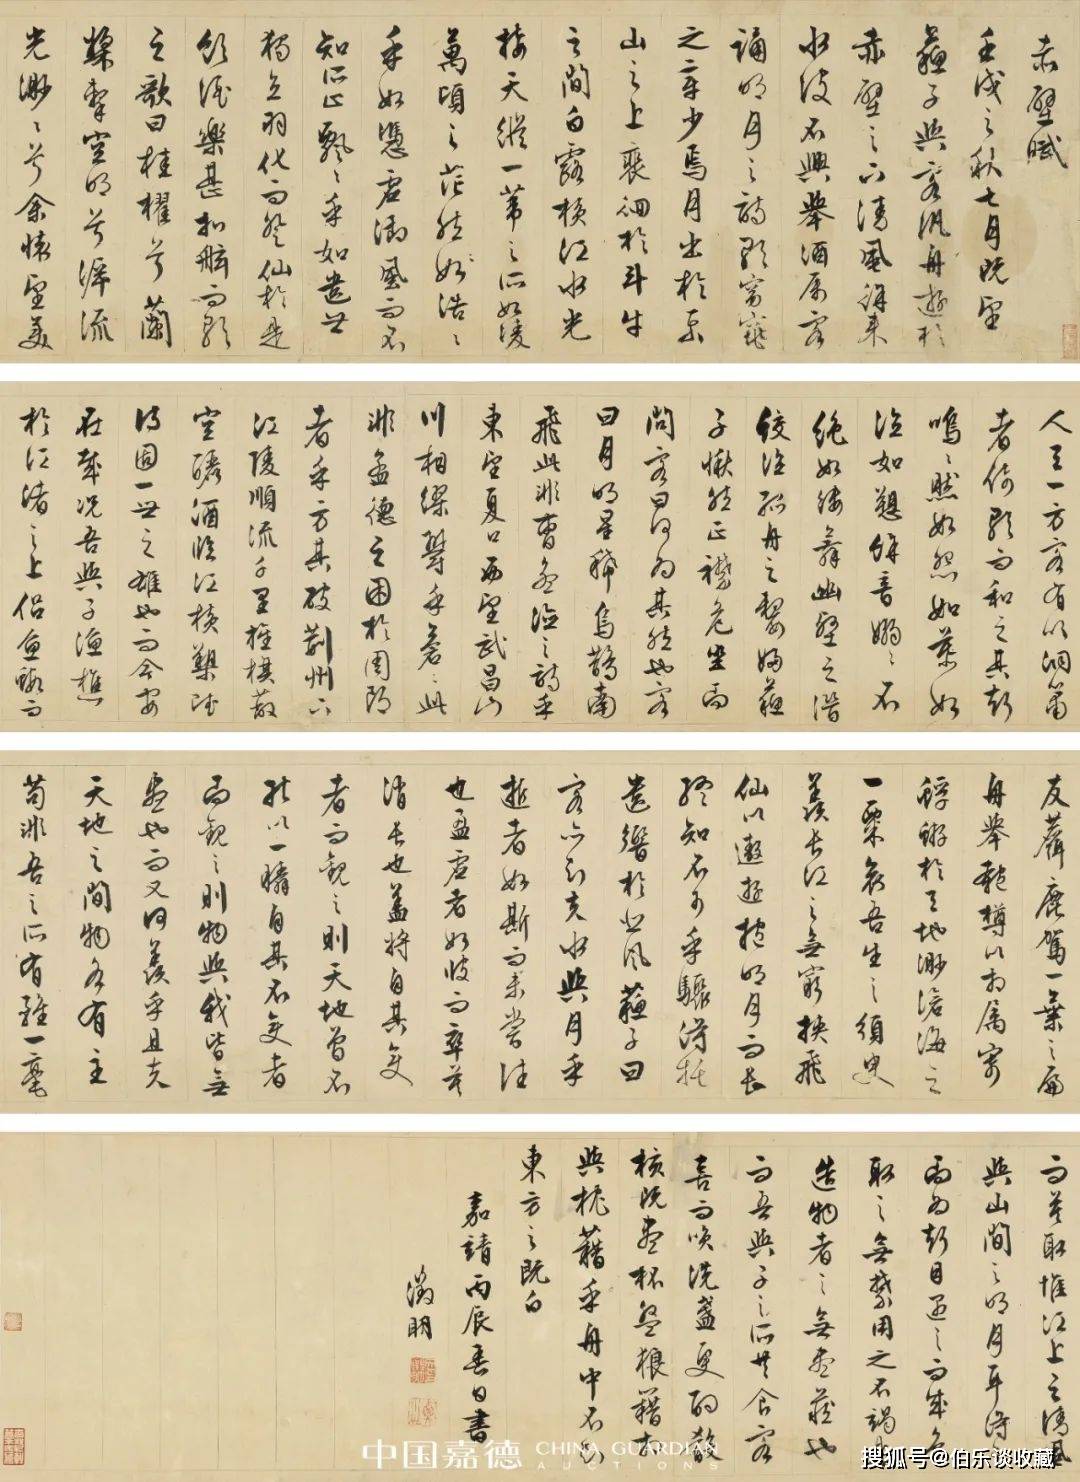 赤壁賦
壬戌之秋七月既望
蘇子與客汎舟遊於
赤壁之下清風徐來
水波不興舉酒屬客
誦明月之詩歌窈窕
之章少焉月出於東
山之上裴徊於斗牛
之間白露橫江水光
接天縱一葦之所如陵
萬頃之茫然浩〻
乎如憑虛御風而不
知所止飄〻乎如遺世
獨立羽化而登仙於是
飲酒樂甚扣舷而歌
之歌曰桂櫂兮蘭
槳擊空明兮泝流
光渺〻兮余懷望美
人天一方客有吹洞簫
者倚歌而和之其聲
嗚〻然如怨如慕如
泣如愬餘音嫋〻不
絕如縷舞幽壑之潛
蛟泣孤舟之嫠婦蘇
子愀然正襟危坐而
問客曰何為其然也客
曰月明星稀烏鵲南
飛此非曹孟德之詩乎
東望夏口西望武昌山
川相繆鬱乎蒼〻此
非孟德之困於周郎
者乎方其破荊州下
江陵順流千里旌旗蔽
空釃酒臨江橫槊賦
詩固一世之雄也而今安
在哉況吾與子漁樵
於江渚之上侶魚蝦而
友麋鹿駕一葉之扁
舟舉匏樽以相屬寄
蜉蝣於天地渺滄海之
一粟哀吾生之須臾
羨長江之無窮挾飛
仙以遨遊抱明月而長
終知不可乎驟得托
遺響於悲風蘇子曰
客亦知夫水與月乎
逝者如斯而未嘗往
也盈虛者如彼而卒莫
消長也蓋將自其變
者而觀之則天地曾不
能以一瞬自其不變者
而觀之則物與我皆無
盡也而又何羨乎且夫
天地之間物各有主
苟非吾之所有雖一毫
而莫取惟江上之清風
與山間之明月耳得
而為聲目遇之而成色
取之無禁用之不竭是
造物者之無盡藏也
而吾與子之所共食客
喜而笑洗盞更酌殽
核既盡杯盤狼籍相
與枕藉乎舟中不知
東方之既白
嘉靖丙辰春日書
徵明
中国嘉德 CHINA GUARDIAN AUCTIONS
搜狐号@伯乐谈收藏